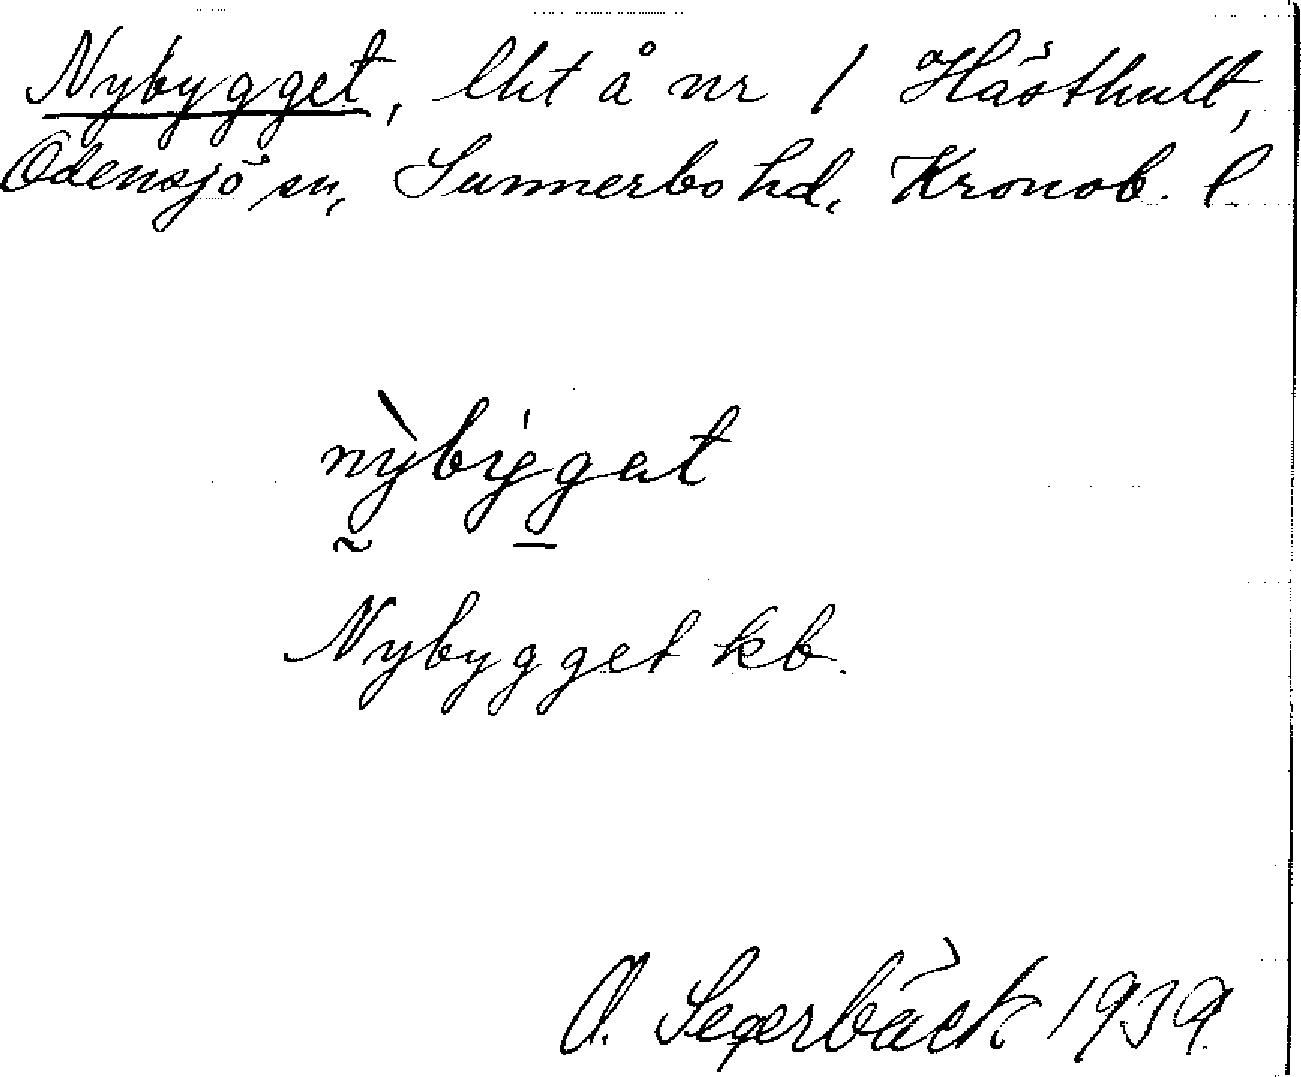 Nybygget, lht å nr 1 Hästhult,
Odensjö sn, Sunnerbo hd, Kronob. l.
nỳbýgat
Nybygget kb.
O. Segerbäck 1939